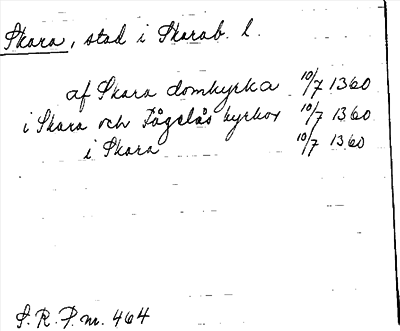 Skara, stad i Skarab. l.
af Skara domkyrka 10/7 1360
i Skara och Fågelås kyrkor 10/7 1360
i Skara 10/7 1360
S. R. P. nr. 464